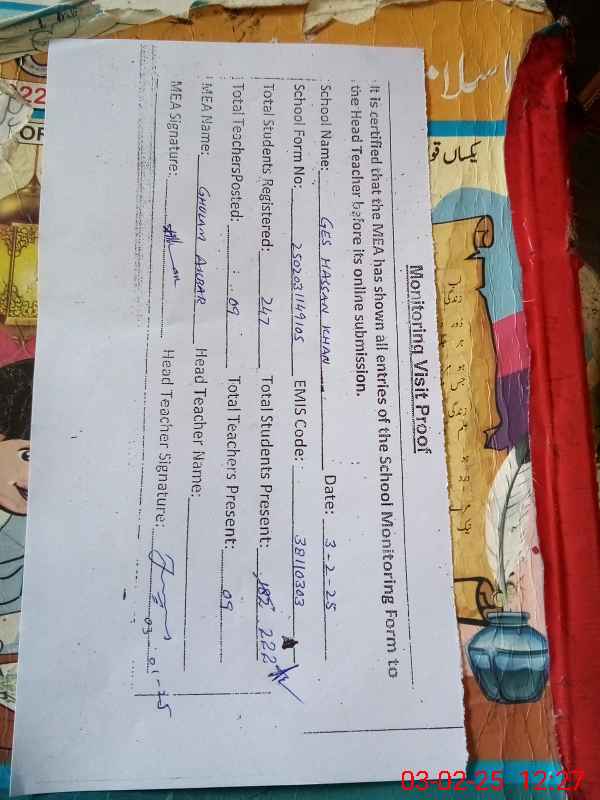 Monitoring Visit Proof
It is certified that the MEA has shown all entries of the School Monitoring Form to
the Head Teacher before its online submission.
School Name: GES HASSAN KHAN Date: 3-2-25
School Form No: 2502031149105 EMIS Code: 38110303
Total Students Registered: 247 Total Students Present: 182 222
Total TeachersPosted: 09 Total Teachers Present: 09
MEA Name: GHULAM Head Teacher Name:
MEA Signature: Head Teacher Signature: 03-01-25
اسلا
یکساں قو
22
OR
03-02-25 12:27